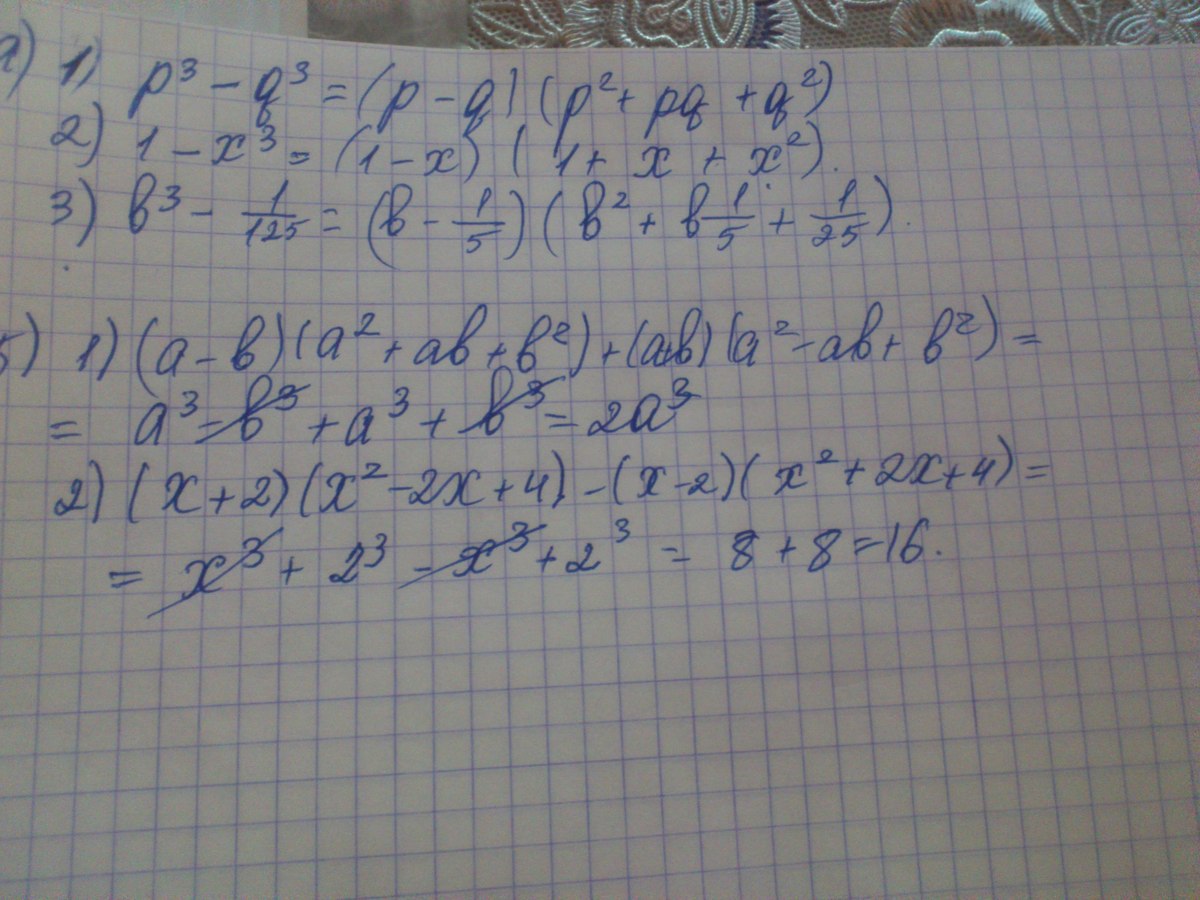 а) 1) p³ - q³ = (p - q) (p² + pq + q²)
2) 1 - x³ = (1 - x) (1 + x + x²).
3) b³ - 1/125 = (b - 1/5) (b² + b 1/5 + 1/25).
б) 1) (a - b)(a² + ab + b²) + (a+b)(a² - ab + b²) =
= a³ - b³ + a³ + b³ = 2a³
2) (x + 2)(x² - 2x + 4) - (x - 2)(x² + 2x + 4) =
= x³ + 2³ - x³ + 2³ = 8 + 8 = 16.